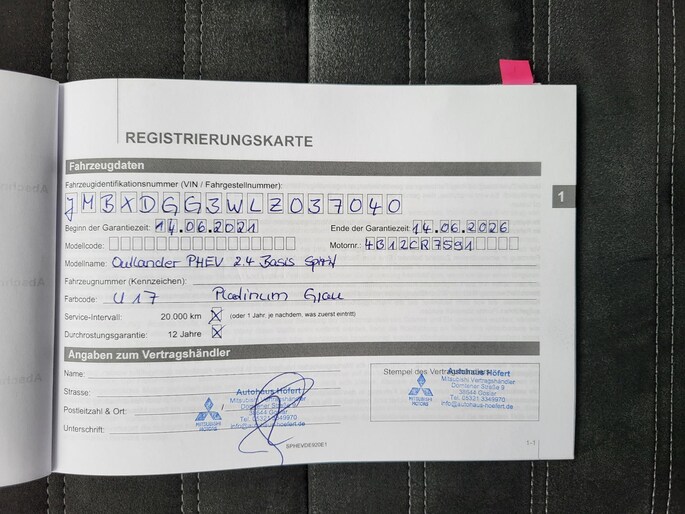 REGISTRIERUNGSKARTE
Fahrzeugdaten
1
Fahrzeugidentifikationsnummer (VIN / Fahrgestellnummer):
JMBXDGG3WLZ037040
Beginn der Garantiezeit: 14.06.2021 Ende der Garantiezeit: 14.06.2026
Modellcode: Motornr.: 4B12CR7591
Modellname: Outlander PHEV 2.4 Basis
Fahrzeugnummer (Kennzeichen):
Farbcode: U17 Platinum Grau
Service-Intervall: 20.000 km X (oder 1 Jahr, je nachdem, was zuerst eintritt)
Durchrostungsgarantie: 12 Jahre X
Angaben zum Vertragshändler
Name:
Straße:
Postleitzahl & Ort:
Unterschrift:
MITSUBISHI
MOTORS
Autohaus Höfert
Mitsubishi Vertragshändler
38644 Goslar
info@autohaus-hoefert.de
Stempel des
Autohaus Höfert
Mitsubishi Vertragshändler
38644 Goslar
info@autohaus-hoefert.de
MITSUBISHI
MOTORS
SPHEVDE920E1
1-1